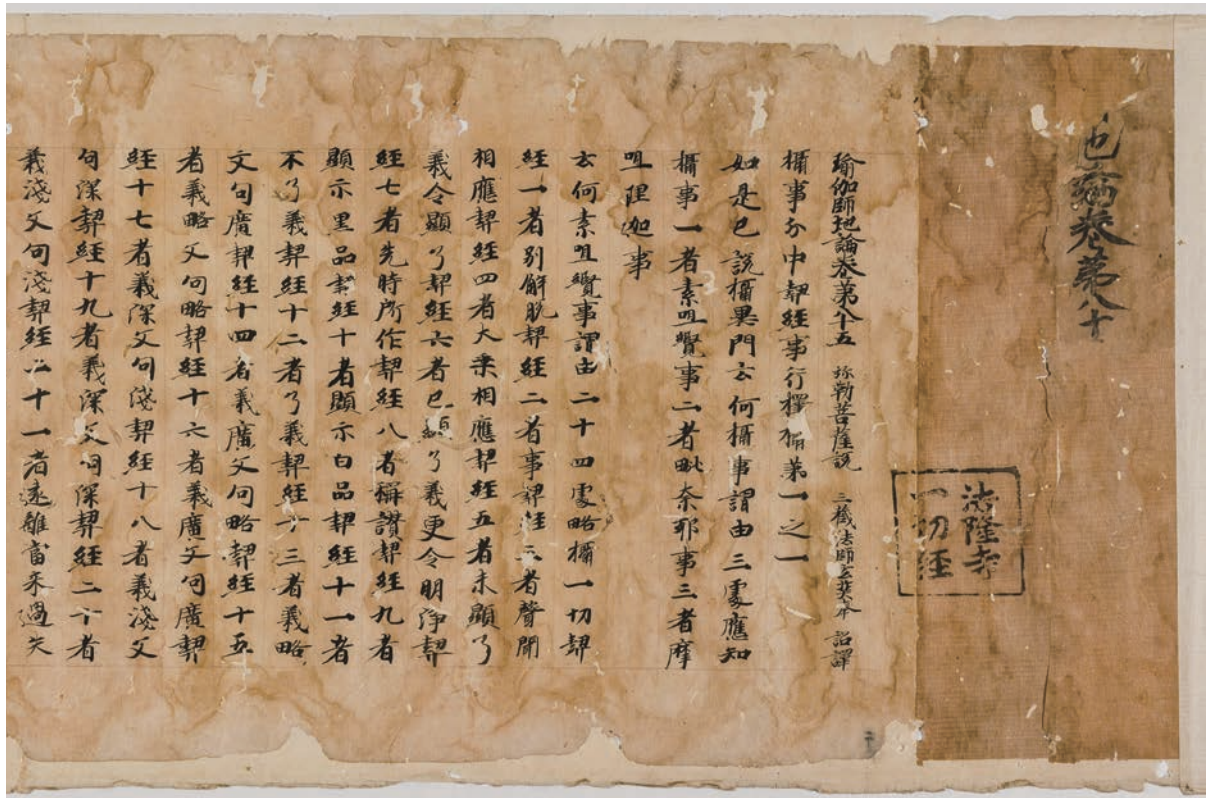 巻第八十
法隆寺
一切経
瑜伽師地論卷第八十五 弥勒菩薩説 三蔵法師玄奘奉 詔譯
攝事分中契経事行擇攝第一之一
如是已説攝異門云何攝事謂由三處應知
攝事一者素呾纜事二者毗奈耶事三者摩
呾理迦事
云何素呾纜事謂由二十四處略攝一切契
経一者別解脱契経二者事契経三者聲聞
相應契経四者大乗相應契経五者未顯了
義令顯了契経六者已顯了義更令明浄契
経七者先時所作契経八者稱讃契経九者
顯示黒品契経十者顯示白品契経十一者
不了義契経十二者了義契経十三者義略
文句廣契経十四者義廣文句略契経十五
者義略文句略契経十六者義廣文句廣契
経十七者義深文句淺契経十八者義淺文
句深契経十九者義深文句深契経二十者
義淺文句淺契経二十一者遠離當来過失